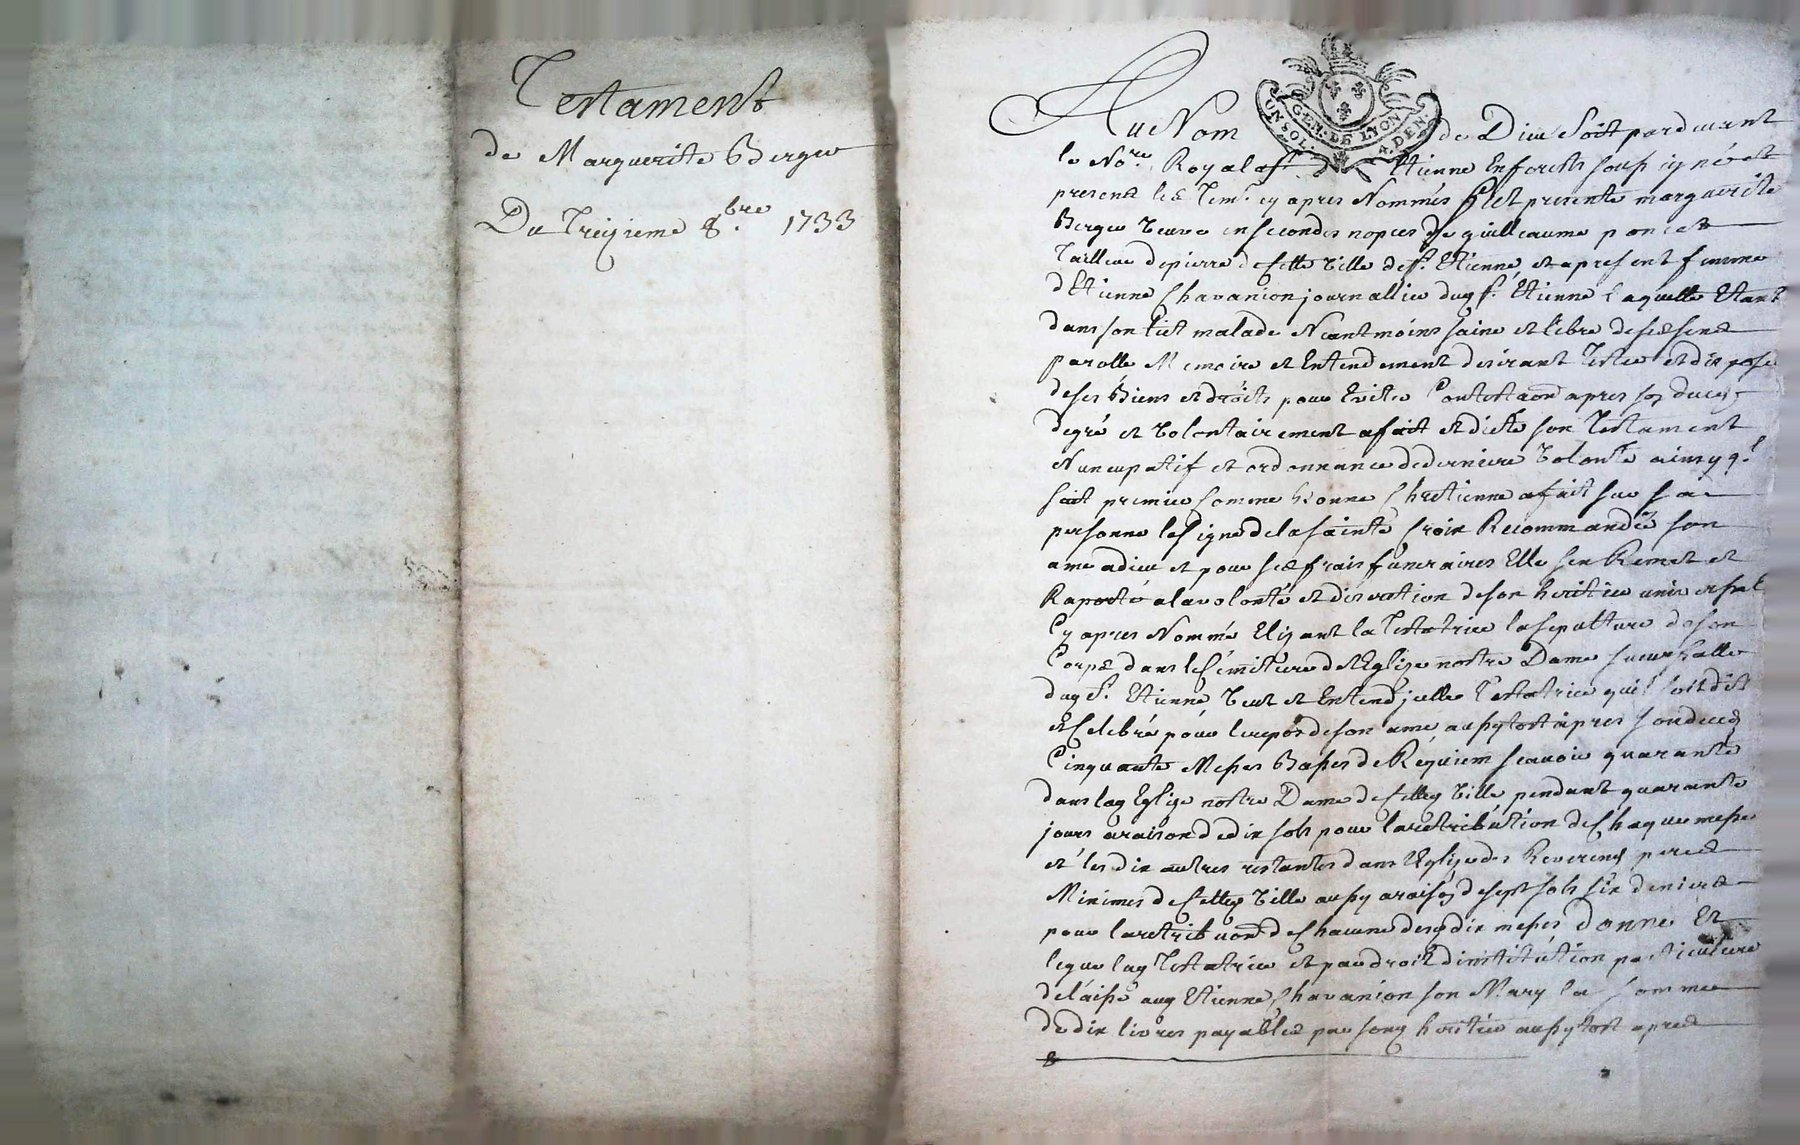 Testament
de Marguerite Berger
Du Treizieme 8.bre 1733
GEN. DE LYON
UN SOL. 4. DEN.
Au Nom de Dieu Soit pardevant
le No.re Royal a St. Etienne Enforests soussigné et
presents les Tem. cy apres Nommés fut presente marguerite
Berger veuve en secondes nopces de guilleaume poncet
Tailleur de pierre de cette ville de St. Etienne et apresent femme
d'Etienne Chavanion journallier dud St. Etienne Laquelle Etant
dans son lict malade Neantmoins saine et libre de ses sens
parolle Memoire et Entendement desirant Tester et dispose
de ses Biens et droits pour Eviter Contestaon apres son deceds
de gré et volontairement a fait et dicté son Testament
Nuncupatif et ordonnance de derniere volonté ainsy q.l
suit premier comme bonne Chretienne a fait sur sa
personne le signe de la sainte Croix Recommandé son
ame a dieu et pour ses frais funeraires Elle s'en Remet et
Raporte a la volonté et discretion de son heritier universel
Cy apres Nommé Elizant la Testatrice la sepulture de son
Corps dans le Cemitiere de l'Eglize nostre Dame succursalle
dud St. Etienne Veut et Entend jcelle Testatrice quil soit dit
et Celebré pour le repos de son ame aussytost apres son deced
Cinquante Messes Basses de Réquiem scavoir quarante
dans lad Eglize nostre Dame de cetted ville pendant quarante
jours a raison de dix sols pour la retribution de chaque messe
et les dix autres restantes dans l'Eglize des Reverends peres
Minimes de cetted ville aussy a raison de sept sols six deniers
pour la retribuon de chacune desd dix messes donne Et
legue lad Testatrice et par droit d'institution particuliere
delaisse aud Etienne Chavanion son Mary la somme
de dix livres payables par sond heritier aussytost apres